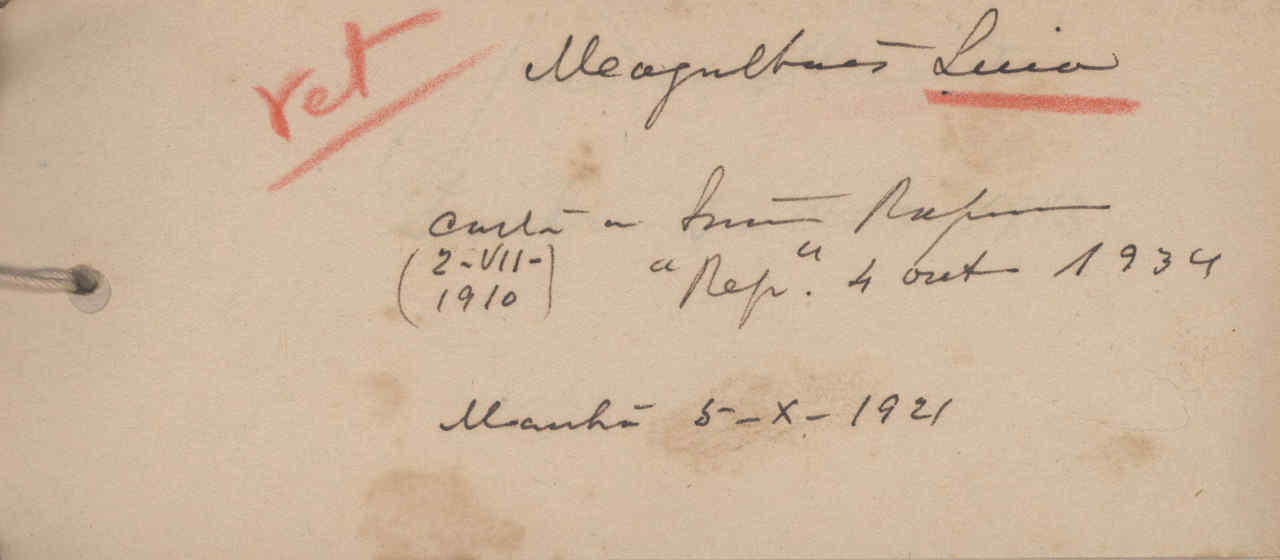 ret
Magalhães Lima
carta a
(2-VII-1910)
"Rep". 4 out 1934
Manhã 5-X-1921